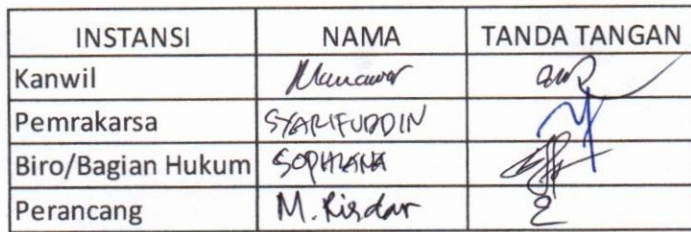 INSTANSI NAMA TANDA TANGAN
Kanwil Munawar
Pemrakarsa SYARIFUDDIN
Biro/Bagian Hukum SOPHIANA
Perancang M. Risdar